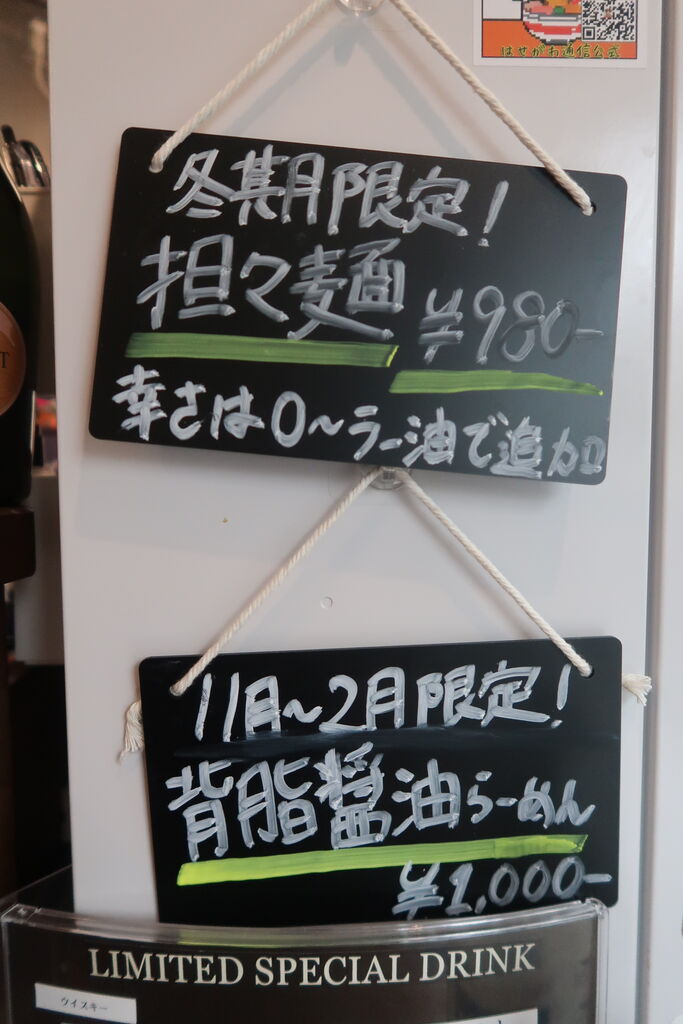 はせがわ通信公式
冬期限定!
担々麺 ¥980-
辛さは0〜ラー油で追加
11月〜2月限定!
背脂醤油らーめん
¥1,000-
LIMITED SPECIAL DRINK
ウイスキー